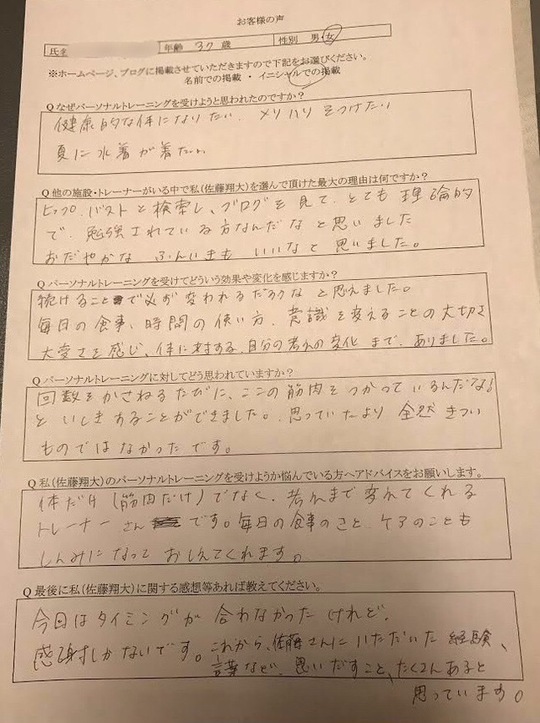 お客様の声
氏名 年齢 37 歳 性別 男・女
※ホームページ、ブログに掲載させていただきますので下記をお選びください。
名前での掲載 ・ イニシャルでの掲載
Q なぜパーソナルトレーニングを受けようと思われたのですか？
健康的な体になりたい、メリハリをつけたい
夏に水着が着たい
Q 他の施設・トレーナーがいる中で私(佐藤翔大)を選んで頂けた最大の理由は何ですか？
ヒップ、バストと検索し、ブログを見て、とても理論的
で、勉強されている方なんだなと思いました
おだやかな ふんいきも いいなと思いました。
Q パーソナルトレーニングを受けてどういう効果や変化を感じますか？
続けることで必ず変われるだろうなと思えました。
毎日の食事、時間の使い方、意識を変えることの大切さ
大変さを感じ、体に対する、自分の考えの変化まで、ありました。
Q パーソナルトレーニングに対してどう思われていますか？
回数をかさねるたびに、ここの筋肉をつかっているんだな！
といしきすることができました。思っていたより全然きつい
ものではなかったです。
Q 私(佐藤翔大)のパーソナルトレーニングを受けようか悩んでいる方へアドバイスをお願いします。
体だけ(筋肉だけ)でなく、考えまで変えてくれる
トレーナーさんです。毎日の食事のこと、ケアのことも
しんみになっておしえてくれます。
Q 最後に私(佐藤翔大)に関する感想等あれば教えてください。
今回はタイミングが合わなかったけれど、
感謝しかないです。これから、佐藤さんにいただいた経験、
言葉など、思いだすこと、たくさんあると
思っています。